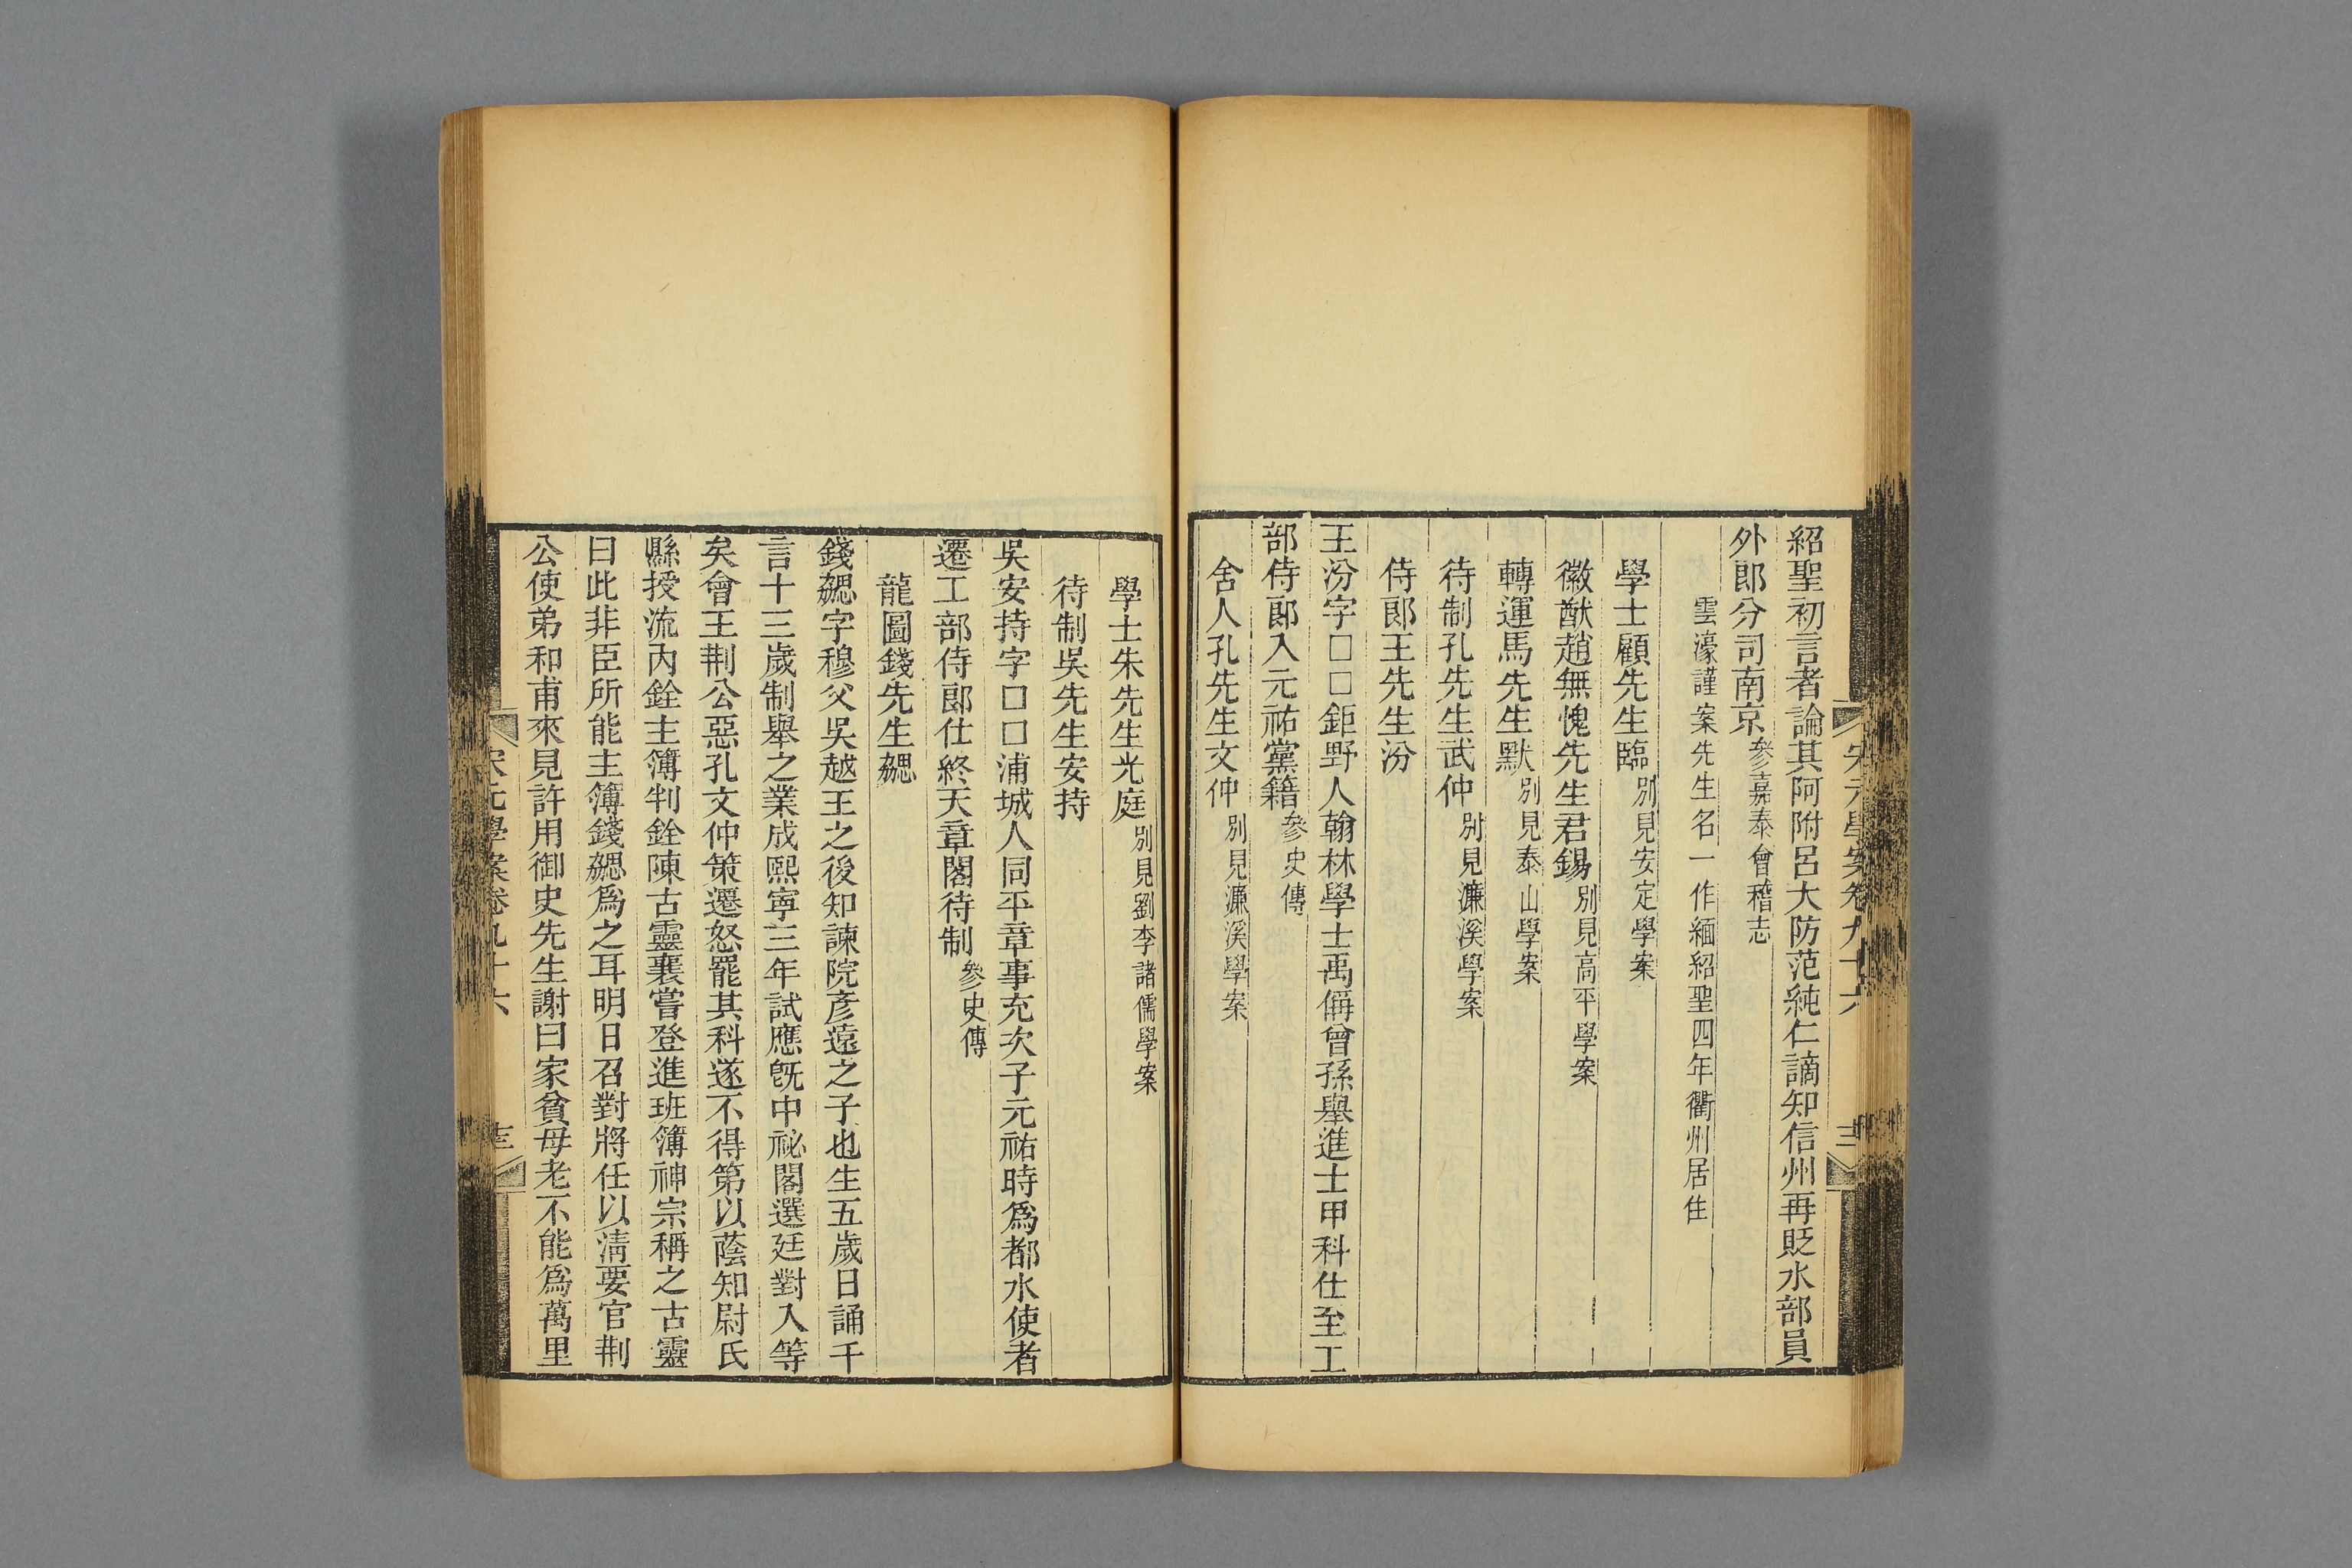 紹聖初言者論其阿附呂大防范純仁謫知信州再貶水部員
外郎分司南京參嘉泰會稽志
雲濠謹案先生名一作緬紹聖四年衢州居住
學士顧先生臨別見安定學案
徽猷趙無愧先生君錫別見高平學案
轉運馬先生默別見泰山學案
待制孔先生武仲別見濂溪學案
侍郎王先生汾
王汾字□□鉅野人翰林學士禹偁曾孫舉進士甲科仕至工
部侍郎入元祐黨籍參史傳
舍人孔先生文仲別見濂溪學案
學士朱先生光庭別見劉李諸儒學案
待制吳先生安持
吳安持字□□浦城人同平章事充次子元祐時爲都水使者
遷工部侍郎仕終天章閣待制參史傳
龍圖錢先生勰
錢勰字穆父吳越王之後知諫院彥遠之子也生五歲日誦千
言十三歲制舉之業成熙寧三年試應旣中祕閣選廷對入等
矣會王荆公惡孔文仲策遷怒罷其科遂不得第以蔭知尉氏
縣授流內銓主簿判銓陳古靈襄嘗登進班簿神宗稱之古靈
曰此非臣所能主簿錢勰爲之耳明日召對將任以淸要官荆
公使弟和甫來見許用御史先生謝曰家貧母老不能爲萬里
宋元學案卷九十六